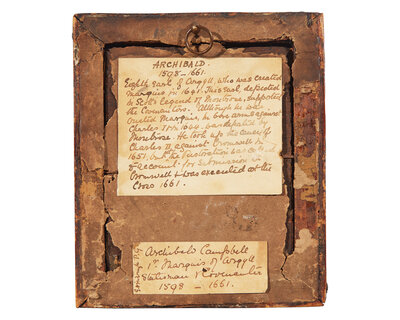 ARCHIBALD.
1598 – 1661.
Eighth Earl of Argyll, who was created
Marquis in 1641. This Earl, depicted
in Scott's Legend of Montrose, supported
the Covenantors. Although he was
created Marquis, he bore arms against
Charles I in 1644 was defeated by
Montrose. He took up the cause of
Charles II against Cromwell in
1651, but the Restoration was called
to account for submission to
Cromwell & was executed at the
Cross 1661.
Archibald Campbell
1st Marquis of Argyll
Statesman & Covenanter
1598 – 1661.
Edinburgh P.G.